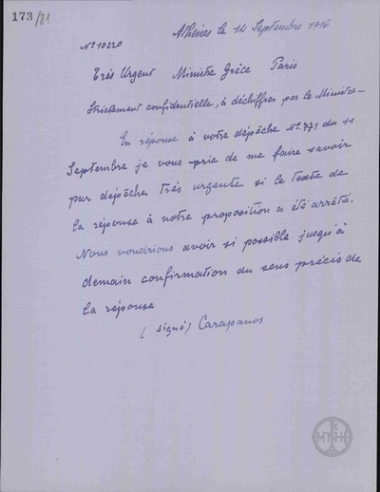 173/81
Athènes le 14 Septembre 1916
No 10220
Très Urgent Ministre Grèce Paris
Strictement confidentielle, à déchiffrer par le Ministre-
En réponse à votre dépêche No 771 du 11
Septembre je vous prie de me faire savoir
par dépêche très urgente si le texte de
la réponse à notre proposition a été arrêté.
Nous voudrions avoir si possible jusqu'à
demain confirmation du sens précis de
la réponse
(signé) Carapanos